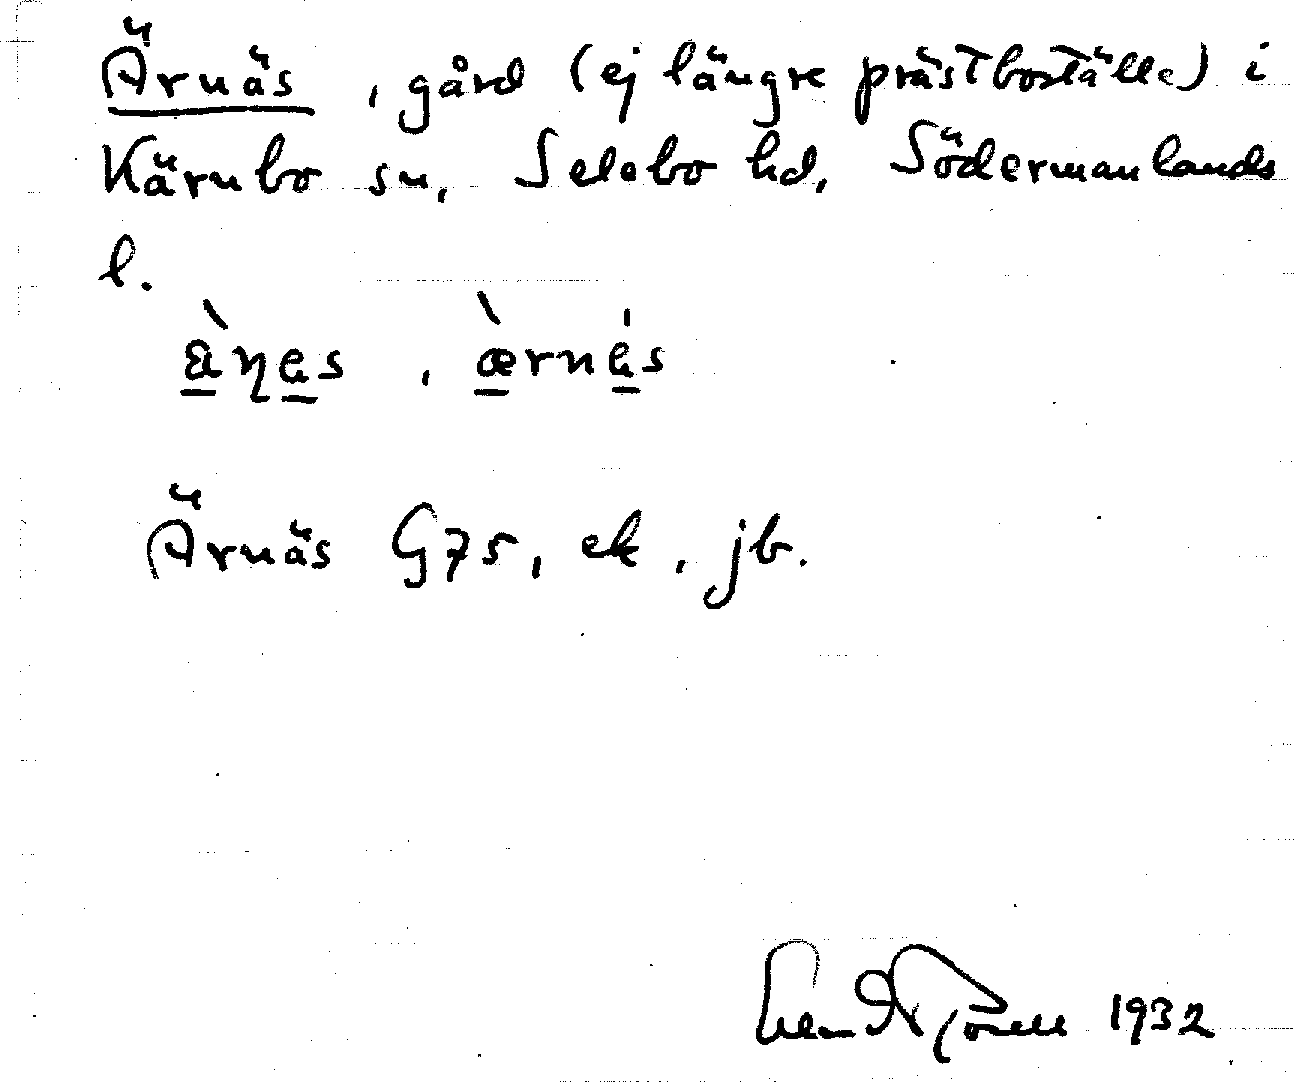 Ärnäs, gård (ej längre prästboställe) i
Kärnbo sn, Selebo hd, Södermanlands
l.
Ärnäs G75, ek, jb.
1932